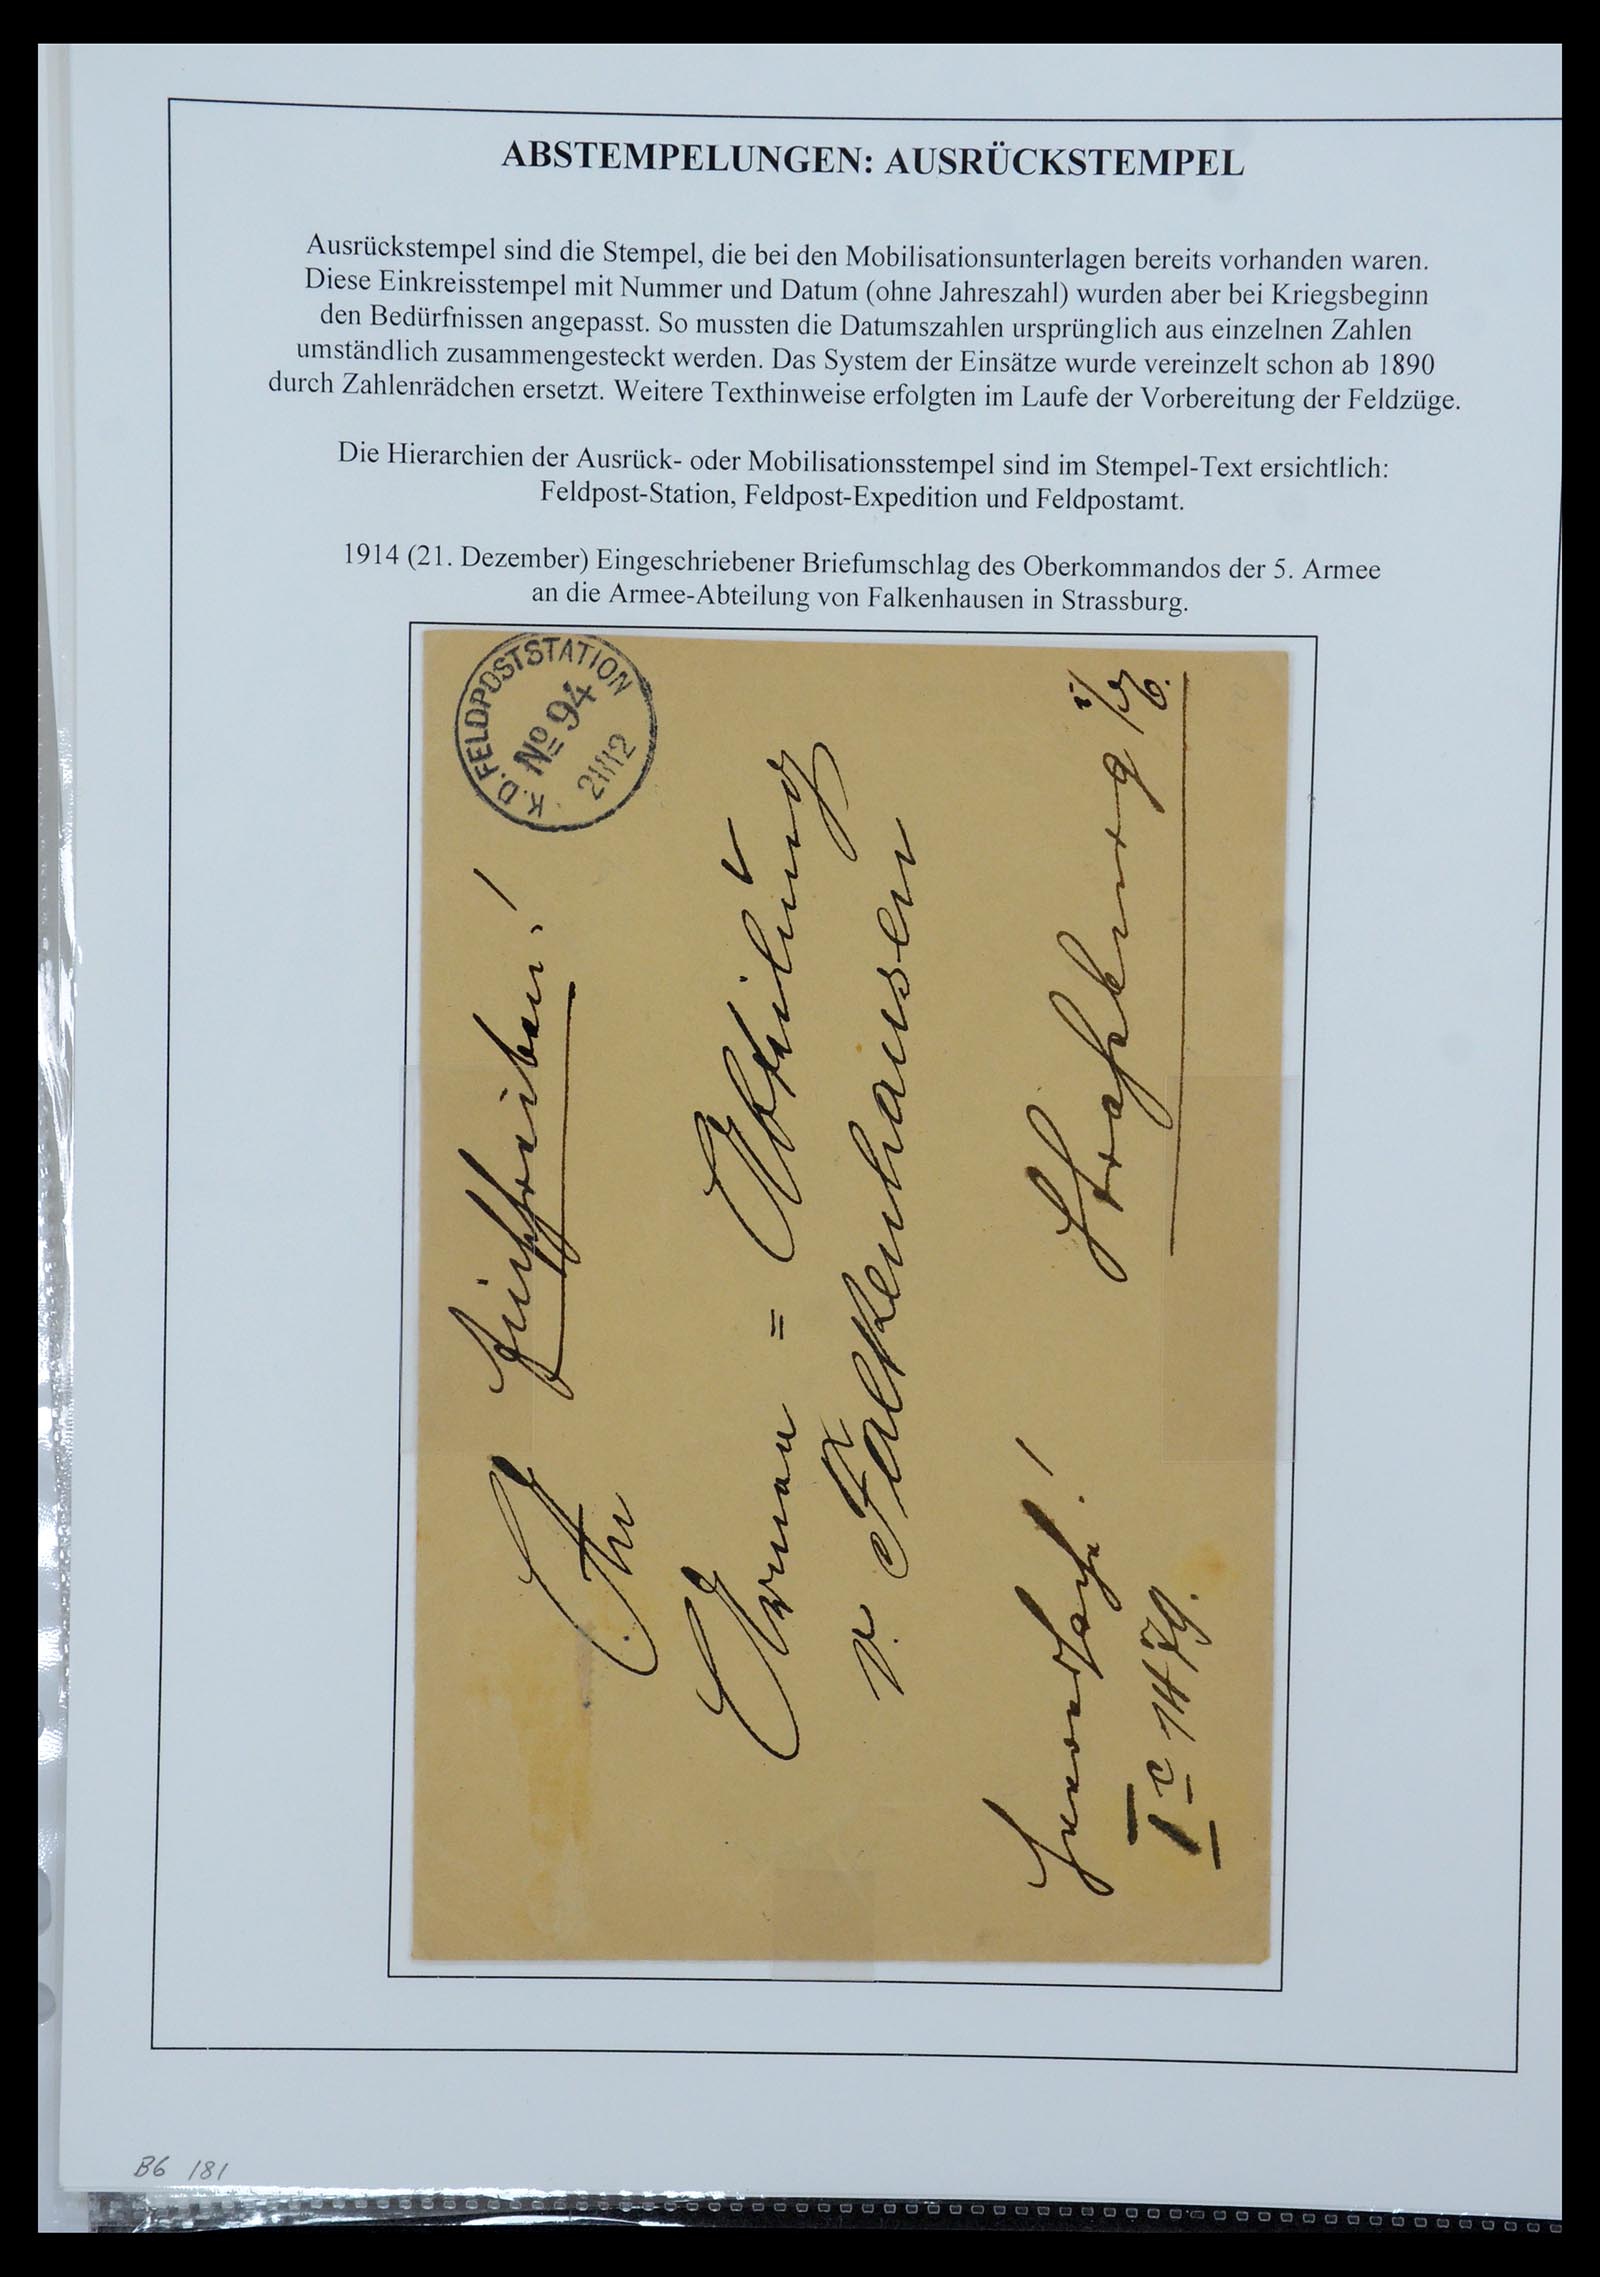 ABSTEMPELUNGEN: AUSRÜCKSTEMPEL
Ausrückstempel sind die Stempel, die bei den Mobilisationsunterlagen bereits vorhanden waren.
Diese Einkreisstempel mit Nummer und Datum (ohne Jahreszahl) wurden aber bei Kriegsbeginn
den Bedürfnissen angepasst. So mussten die Datumszahlen ursprünglich aus einzelnen Zahlen
umständlich zusammengesteckt werden. Das System der Einsätze wurde vereinzelt schon ab 1890
durch Zahlenrädchen ersetzt. Weitere Texthinweise erfolgten im Laufe der Vorbereitung der Feldzüge.
Die Hierarchien der Ausrück- oder Mobilisationsstempel sind im Stempel-Text ersichtlich:
Feldpost-Station, Feldpost-Expedition und Feldpostamt.
1914 (21. Dezember) Eingeschriebener Briefumschlag des Oberkommandos der 5. Armee
an die Armee-Abteilung von Falkenhausen in Strassburg.
K.D. FELDPOSTSTATION
No 94
21/12
Einschreiben!
An
Armee = Abteilung
v. Falkenhausen
Straßburg i/E.
Heeressache!
I c 1479.
B6 181